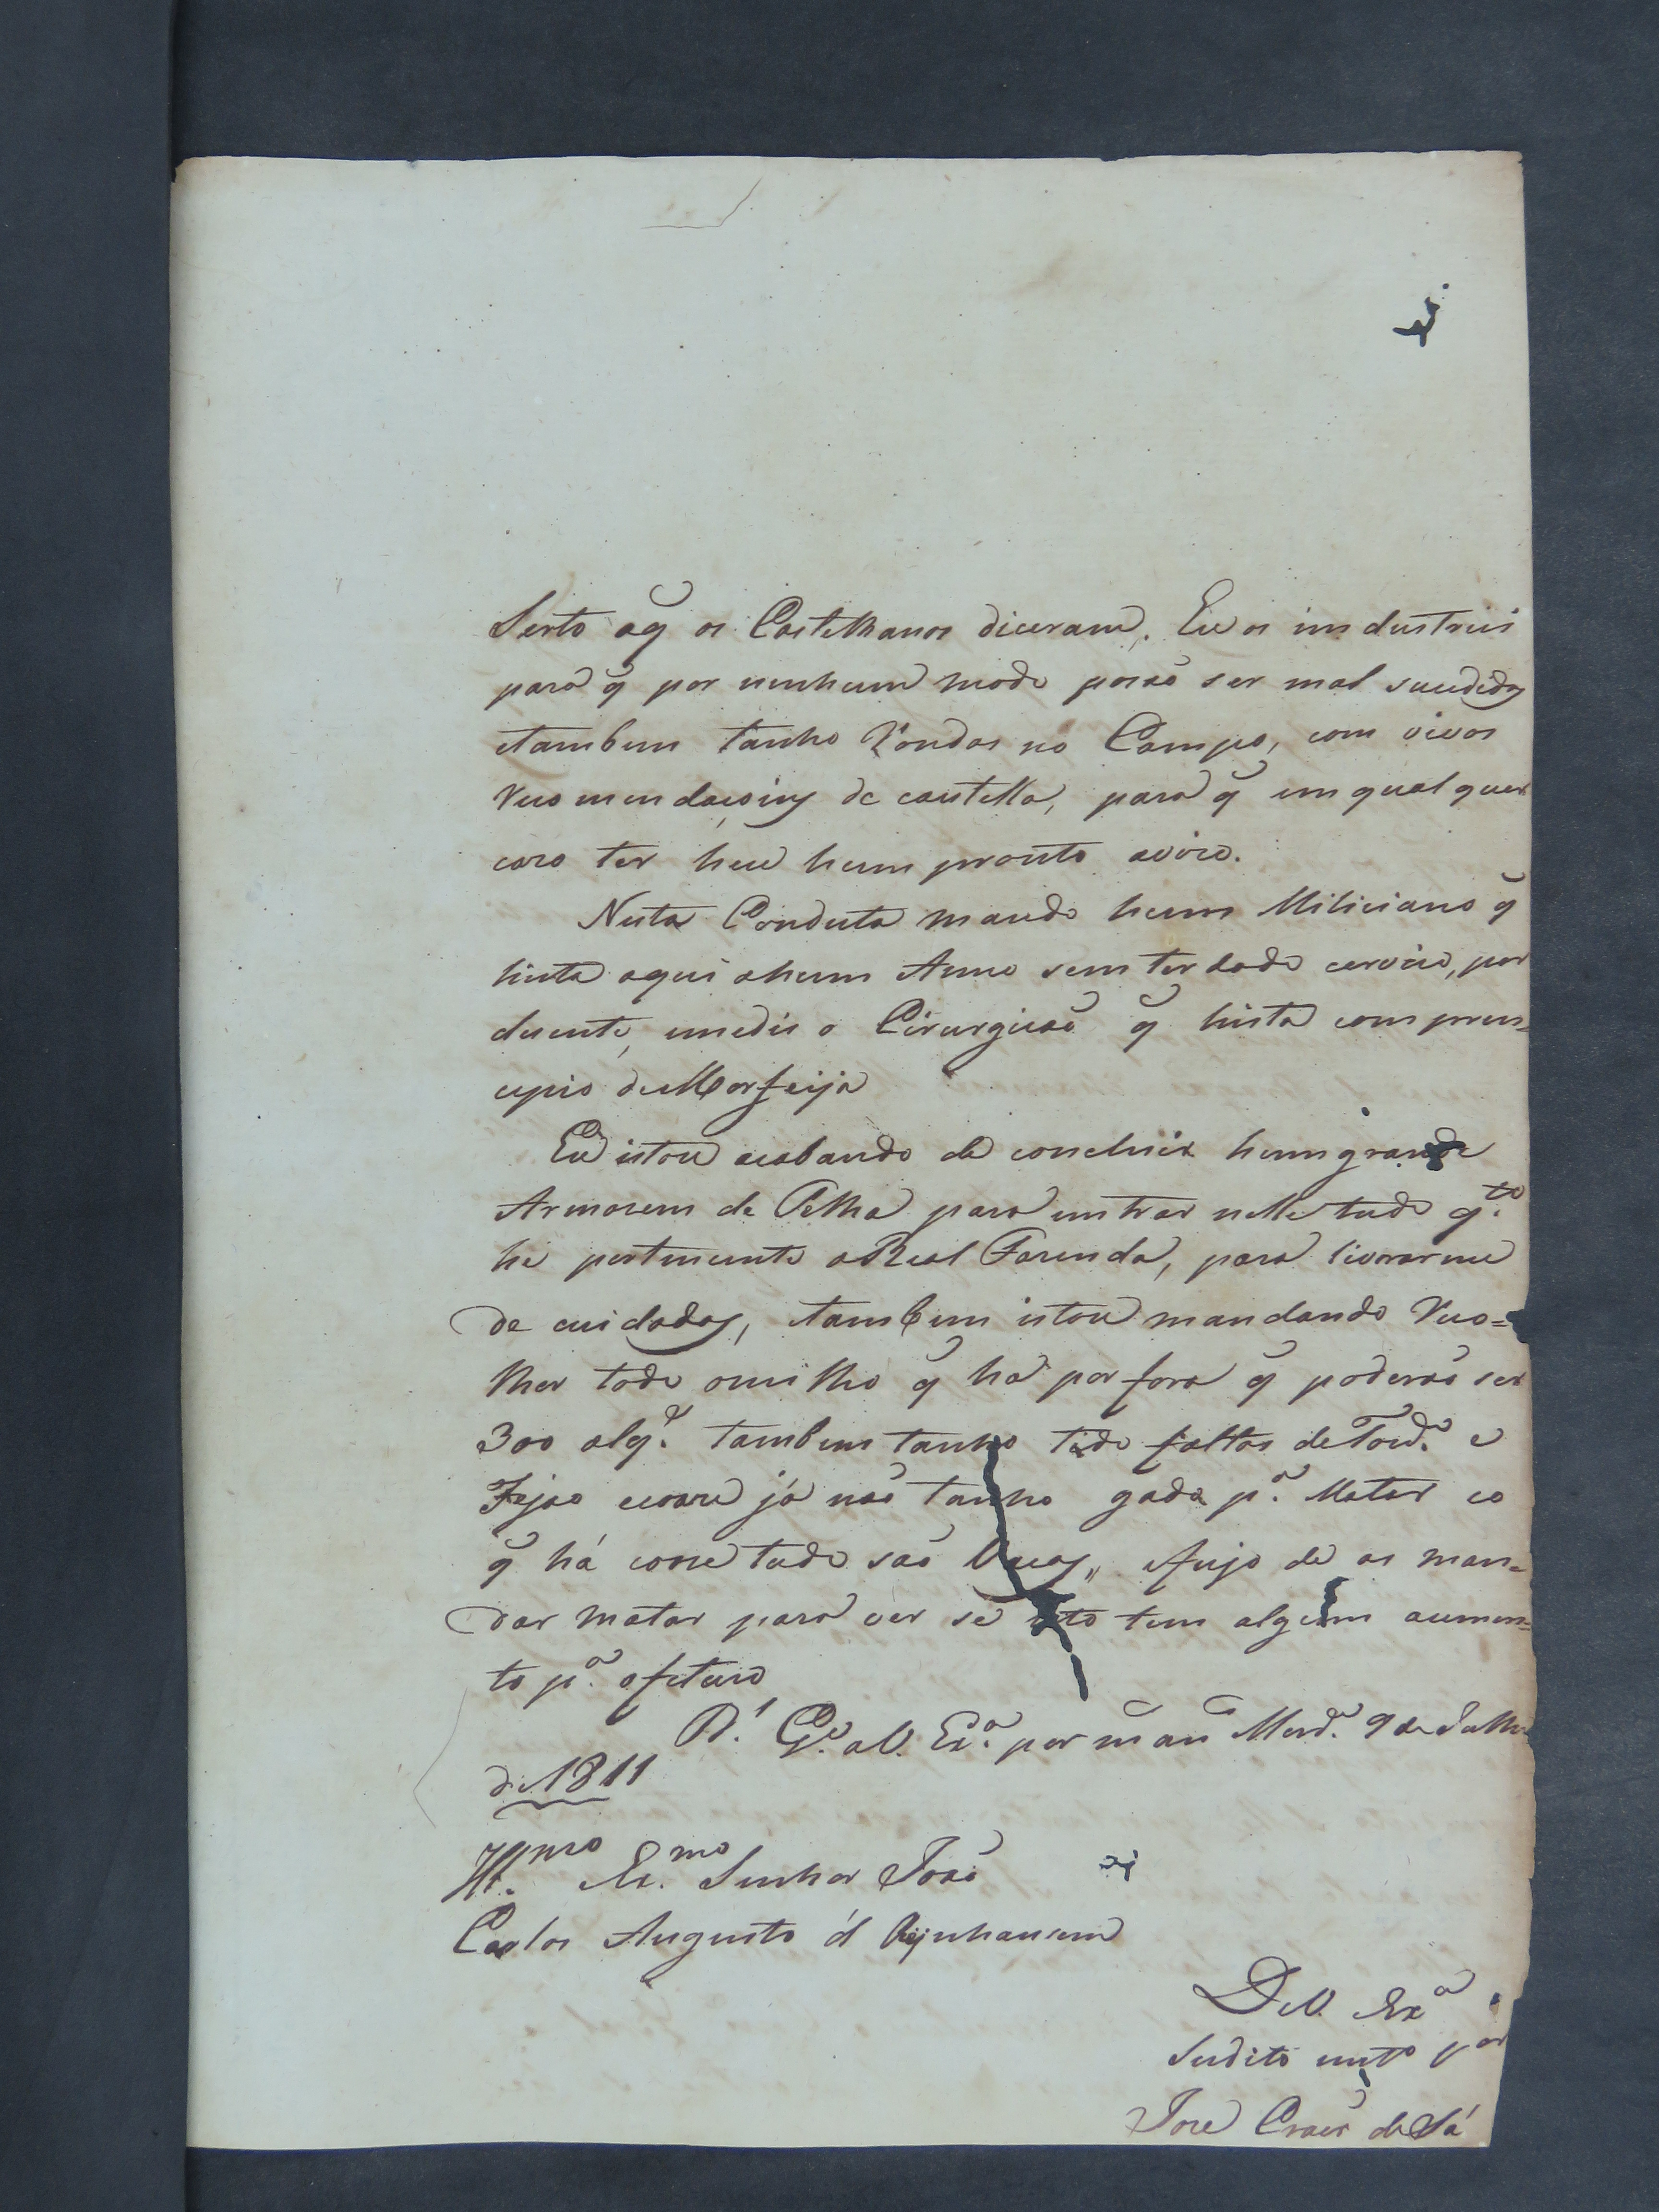 Serto aq̃ os Castelhanos diceram, Eu os industriei
para q̃ por nenhum modo posaõ ser mal sucedidos
etambem tanho Rondas no Campo, com vivas
Recomendacoins de cautella, para q̃ em qual quer
cazo ter heu hum pronto avizo.
Nesta Conduta mando hum Miliciano q̃
hista aqui ahum Anno sem ter dado cervicio, por
duente, emediz o Cirurgiaõ q̃ hista com pren=
cipio deMorfeija
Eu istou acabando de concluir hum grande
Armazem de Telha para entrar nelle tudo q.to
he pertencente aReal Fazenda, para livrarme
de cuidados, etambem istou mandando Reco=
lher todo omilho q̃ há por fora q̃ poderaõ ser
300 alq.s tambem tanho tido faltas deTouc.o e
Fejao ecarne já naõ tanho gado p.a Matar eo
q̃ há corre tudo saõ Vacas,, efujo de as man=
dar matar para ver se isto tem algum aumen=
to p.a ofuturo
D.s G.e aV. Ex.a por m̃ an̄ Merd.a 9 de Julho
de 1811
Ill.mo Ex.mo Senhor Joaõ
Carlos Augusto d' Oeynhausem
DeV. Ex.a
Sudito m.to
Joze Craveiro de Sá